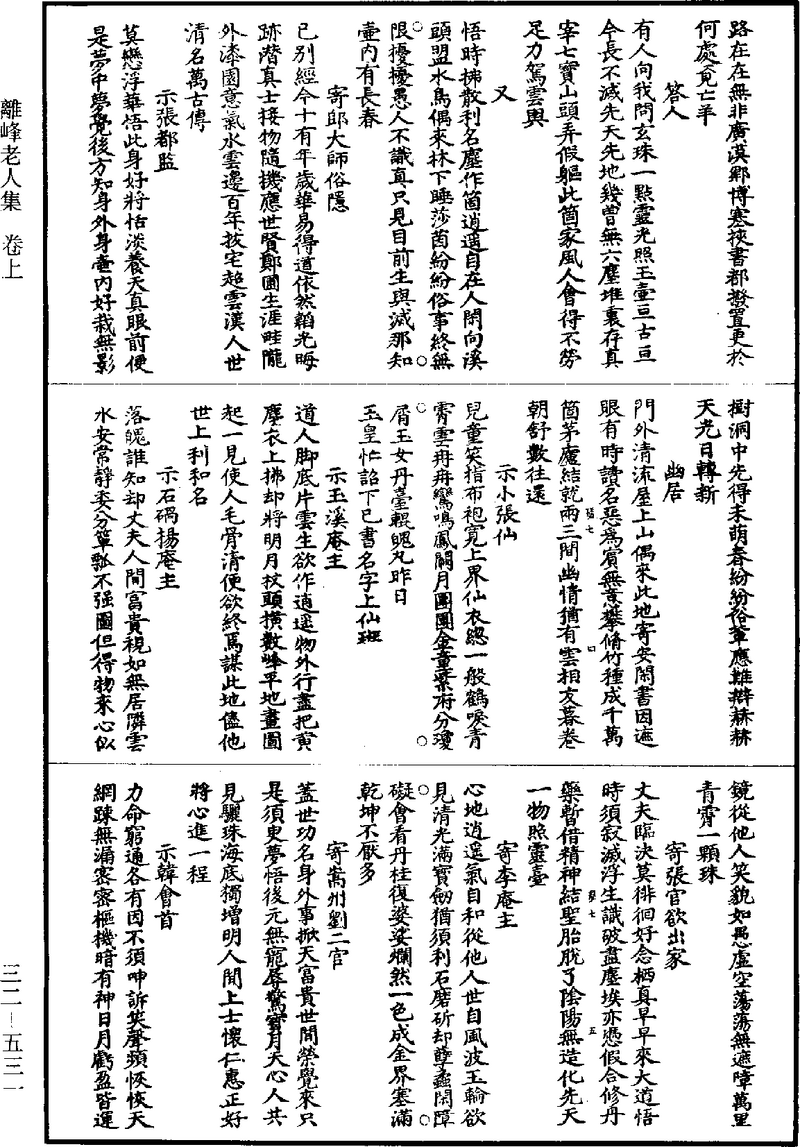 離峰老人集　卷上
三二—五三一
路在在無非廣漠鄉博塞挾書都撥置更於
何處覓亡羊
答人
有人向我問玄珠一點靈光照玉壺亘古亘
今長不滅先天先地幾曾無六塵堆裏存真
宰七寶山頭弄假軀此箇家風人會得不勞
足力駕雲輿
又
悟時拂散利名塵作箇逍遙自在人閑向溪
頭盟水鳥偶來林下睡莎茵紛紛俗事終無
限擾擾愚人不識真只見目前生與滅那知
壺內有長春
寄邱大師俗隱
已別經今十有年歲華易得道依然韜光晦
跡潛真士接物隨機應世賢鄭圃生涯畦隴
外漆園意氣水雲邊百年拔宅超雲漢人世
清名萬古傳
示張都監
莫戀浮華悟此身好將恬淡養天真眼前便
是夢中夢覺後方知身外身壺內好栽無影
樹洞中先得未萌春紛紛俗輩應難辯赫赫
天光日轉新
幽居
門外清流屋上山偶來此地寄安閑書因遮
眼有時讀名惡為賓無意攀脩竹種成千萬
箇茅廬結就兩三間幽情猶有雲相友暮卷
朝舒數往還
示小張仙
兒童笑指布袍寬上界仙衣總一般鶴唳青
霄雲冉冉鸞鳴鳳闕月團團金童紫府分瓊
屑玉女丹臺輥魄丸昨日
玉皇忙詔下已書名字上仙班
示玉溪庵主
道人脚底片雲生欲作逍遙物外行盡把黃
塵衣上拂却將明月杖頭橫數峰平地畫圖
起一見使人毛骨清便欲終焉謀此地儘他
世上利和名
示石碢楊庵主
落魄誰知却丈夫人間富貴視如無居隣雲
水安常靜委分簞瓢不强圖但得物來心似
鏡從他人笑貌如愚虛空蕩蕩無遮障萬里
青霄一顆珠
寄張官欲出家
丈夫臨決莫徘徊好念栖真早早來大道悟
時須寂滅浮生識破盡塵埃亦憑假合修丹
藥暫借精神結聖胎脫了陰陽無造化先天
一物照靈臺
寄李庵主
心地逍遙氣自和從他人世自風波玉輪欲
見清光滿寶劍猶須利石磨斫却孽蟲閑障
礙會看丹桂復婆娑爛然一色成金界塞滿
乾坤不厭多
寄嵩州劉二官
蓋世功名身外事掀天富貴世間榮覺來只
是須臾夢悟後元無寵辱驚寶月天心人共
見驪珠海底獨增明人間上士懷仁惠正好
將心進一程
示韓會首
力命窮通各有因不須呻訴笑聲頻恢恢天
網踈無漏密密樞機暗有神日月虧盈皆運